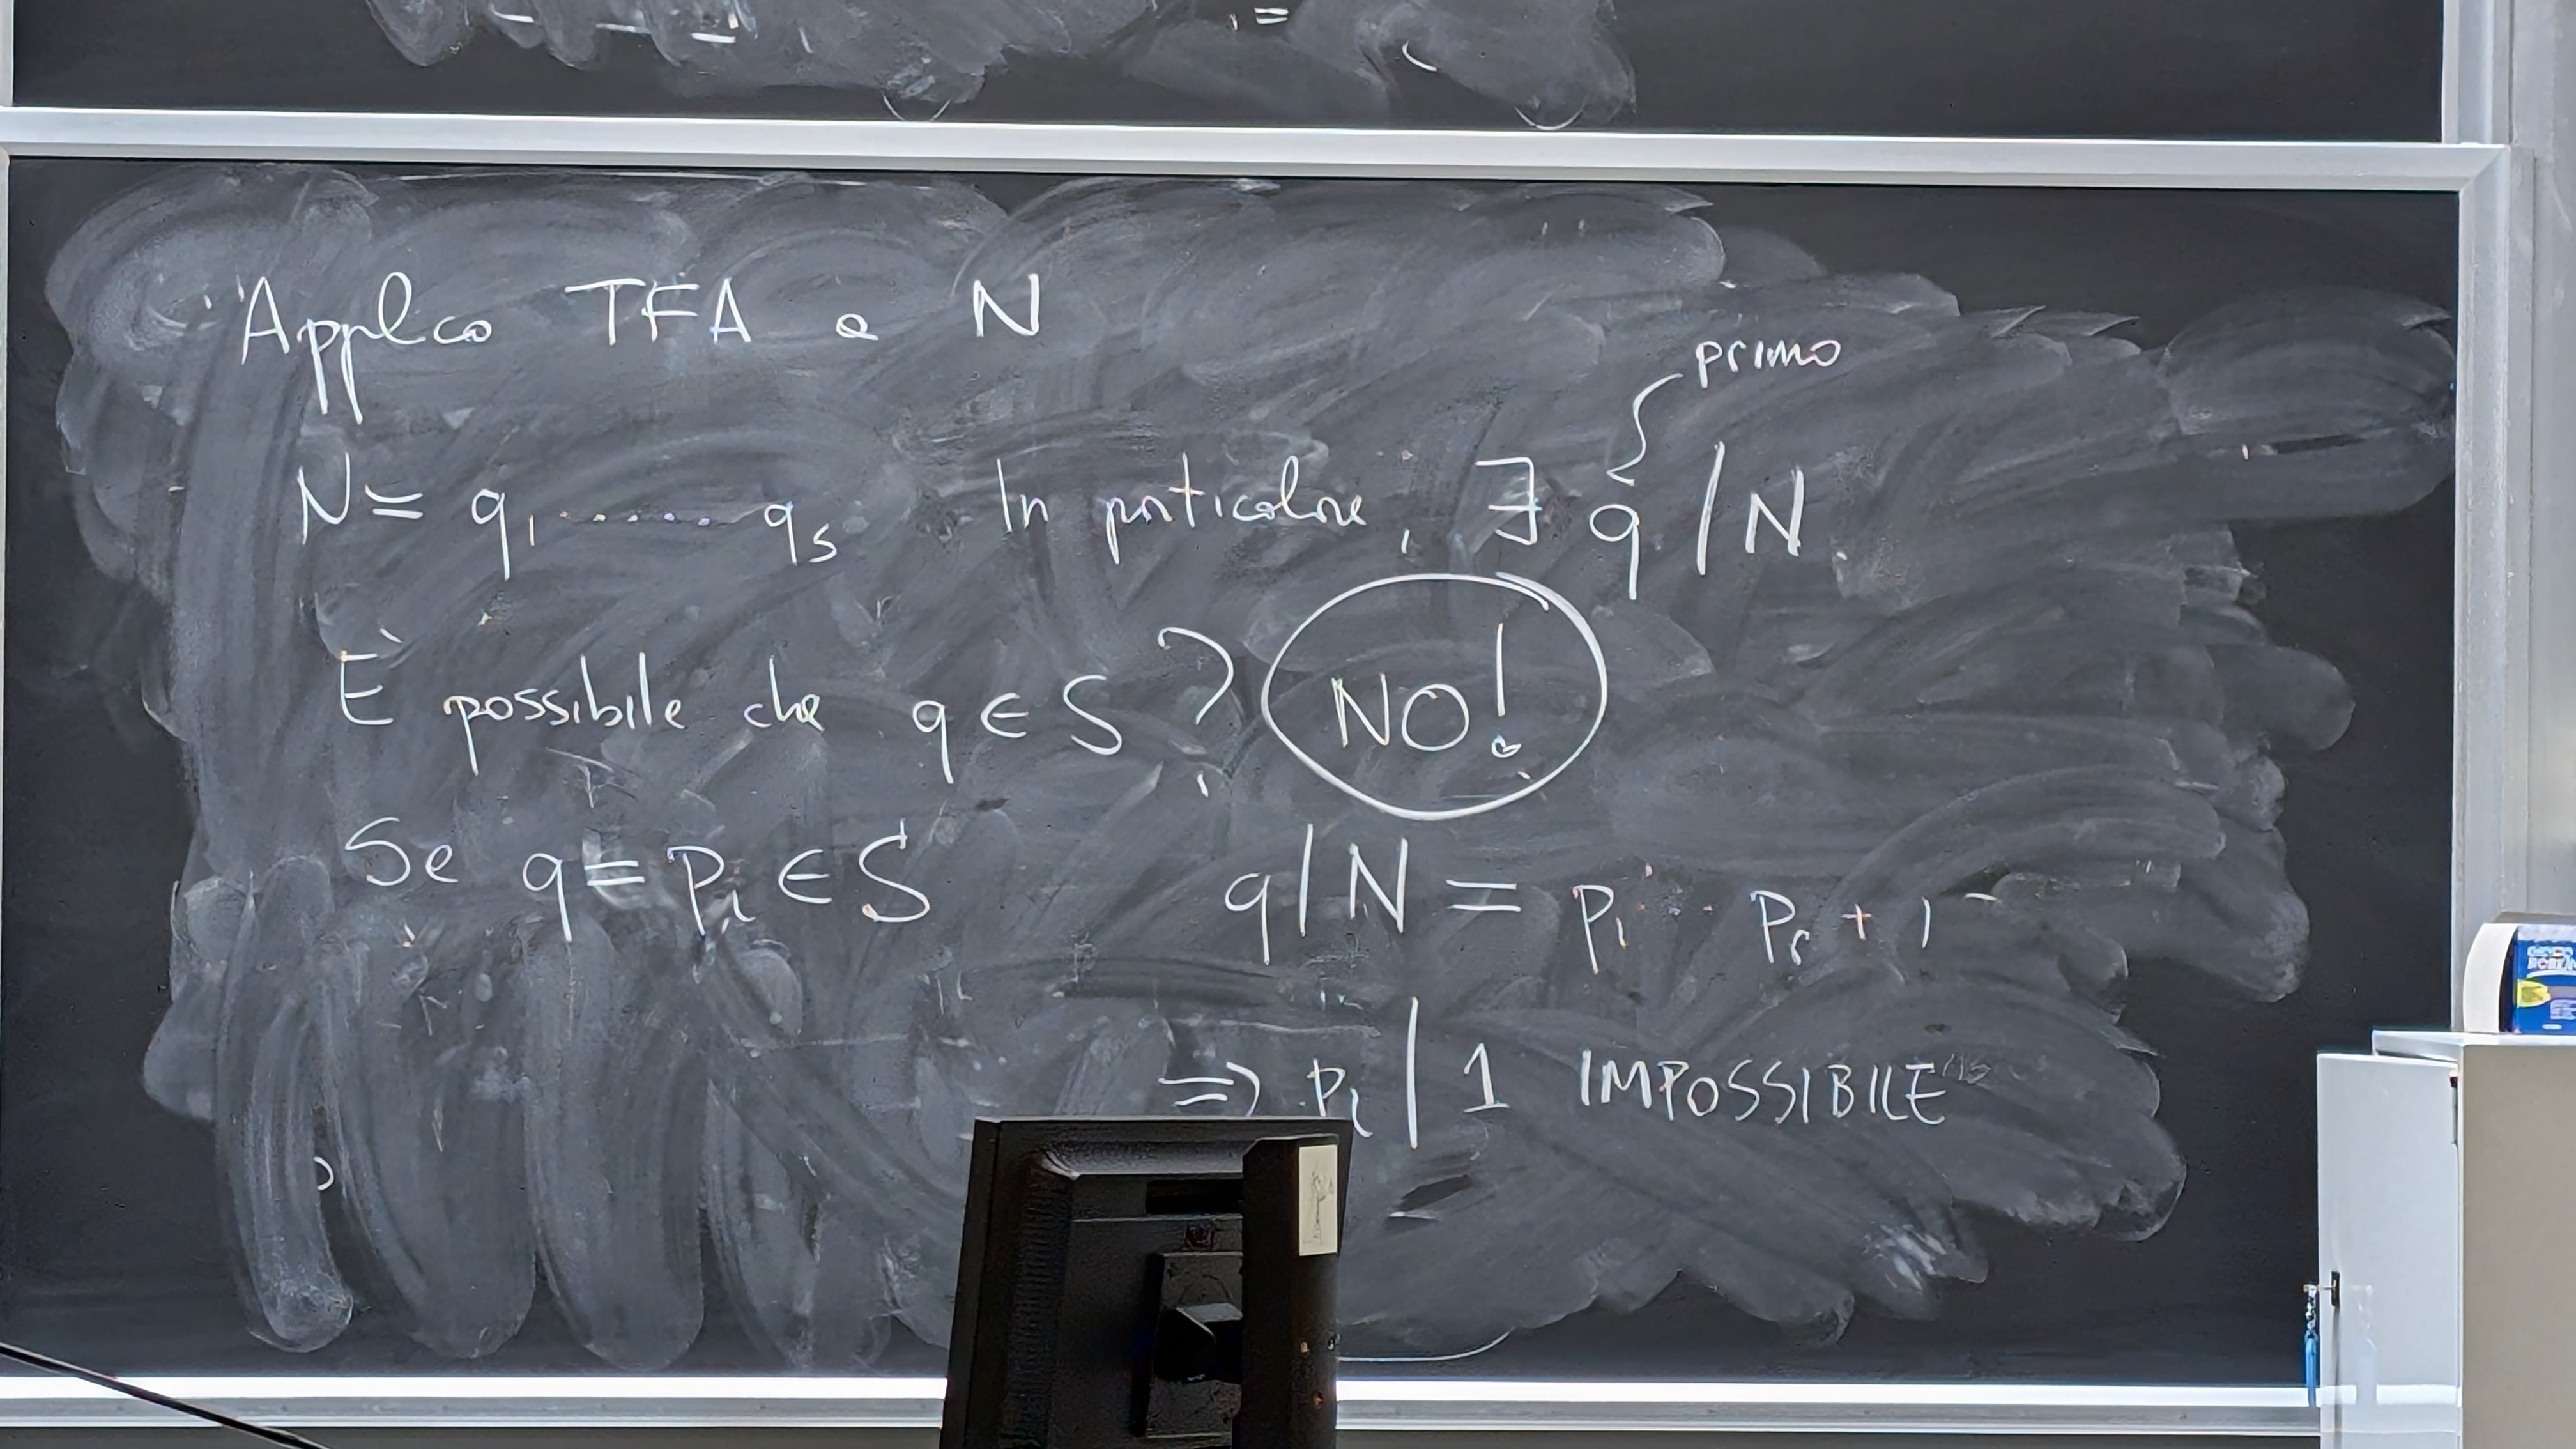 Applico TFA a N
primo
N = q₁ ..... qₛ In particolare, ∃ q | N.
È possibile che q ∈ S ? NO!
Se q = pᵢ ∈ S q | N = p₁ ... pᵣ + 1
⇒ pᵢ | 1 IMPOSSIBILE